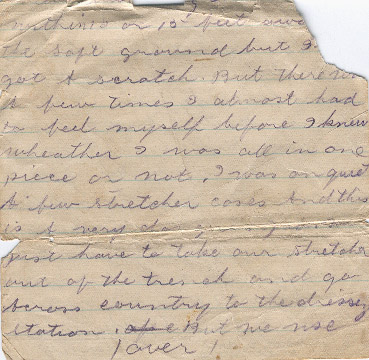 within 10 or 15 feet awa
the soft ground but I
got A scratch. But there wa
A few times I almost had
to feel myself before I knew
wheather I was all in one
piece or not. I was on quiet
A few stretcher cases And this
is A very
just have to take our stretcher
out of the trench and go
across country to the dressing
station. But we use
(over)